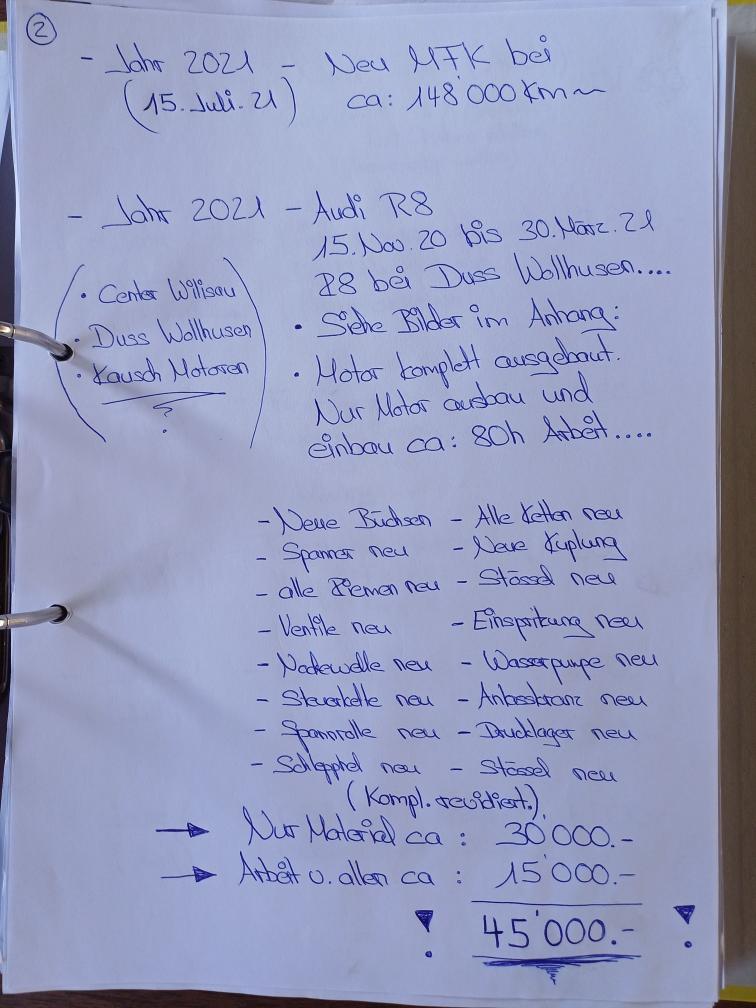 2
- Jahr 2021 - Neu MFK bei
(15. Juli. 21) ca: 148'000 Km
- Jahr 2021 - Audi R8
15. Nov. 20 bis 30. März. 21
R8 bei Duss Wollhusen....
• Siehe Bilder im Anhang:
• Motor komplett ausgebaut.
Nur Motor ausbau und
einbau ca: 80h Arbeit....
• Center Willisau
• Duss Wollhusen
• Kausch Motoren
?
- Neue Büchsen - Alle Ketten neu
- Spanner neu - Neue Kuplung
- alle Riemen neu - Stössel neu
- Ventile neu - Einspritzung neu
- Nockewelle neu - Wasserpumpe neu
- Steuerkette neu - Anlasskranz neu
- Spannrolle neu - Drucklager neu
- Schlepphel neu - Stössel neu
(Kompl. revidiert.)
→ Nur Material ca : 30'000.-
→ Arbeit u. allen ca : 15'000.-
! 45'000.- !